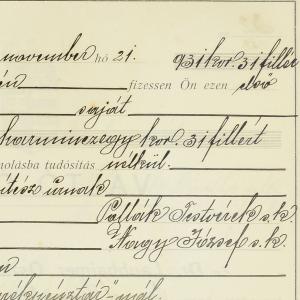 november hó 21. 931 kor. 31 fillér
fizessen Ön ezen első
saját
harminczegy kor. 31 fillért
molásba tudósítás nélkül.
ítész úrnak
Pollák Testvérek s.k.
Nagy József s.k.